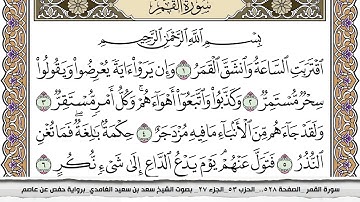 سورة القمر
بسم الله الرحمن الرحيم
اقْتَرَبَتِ السَّاعَةُ وَانشَقَّ الْقَمَرُ ١ وَإِن يَرَوْا ءَايَةً يُعْرِضُوا وَيَقُولُوا
سِحْرٌ مُّسْتَمِرٌّ ٢ وَكَذَّبُوا وَاتَّبَعُوا أَهْوَاءَهُمْ ۚ وَكُلُّ أَمْرٍ مُّسْتَقِرٌّ ٣
وَلَقَدْ جَاءَهُم مِّنَ الْأَنبَاءِ مَا فِيهِ مُزْدَجَرٌ ٤ حِكْمَةٌ بَالِغَةٌ ۖ فَمَا تُغْنِ
النُّذُرُ ٥ فَتَوَلَّ عَنْهُمْ ۘ يَوْمَ يَدْعُ الدَّاعِ إِلَىٰ شَيْءٍ نُّكُرٍ ٦
سورة القمر .الصفحة ٥٢٨... الحزب ٥٣ .الجزء ٢٧ .بصوت الشيخ سعد بن سعيد الغامدي .برواية حفص عن عاصم